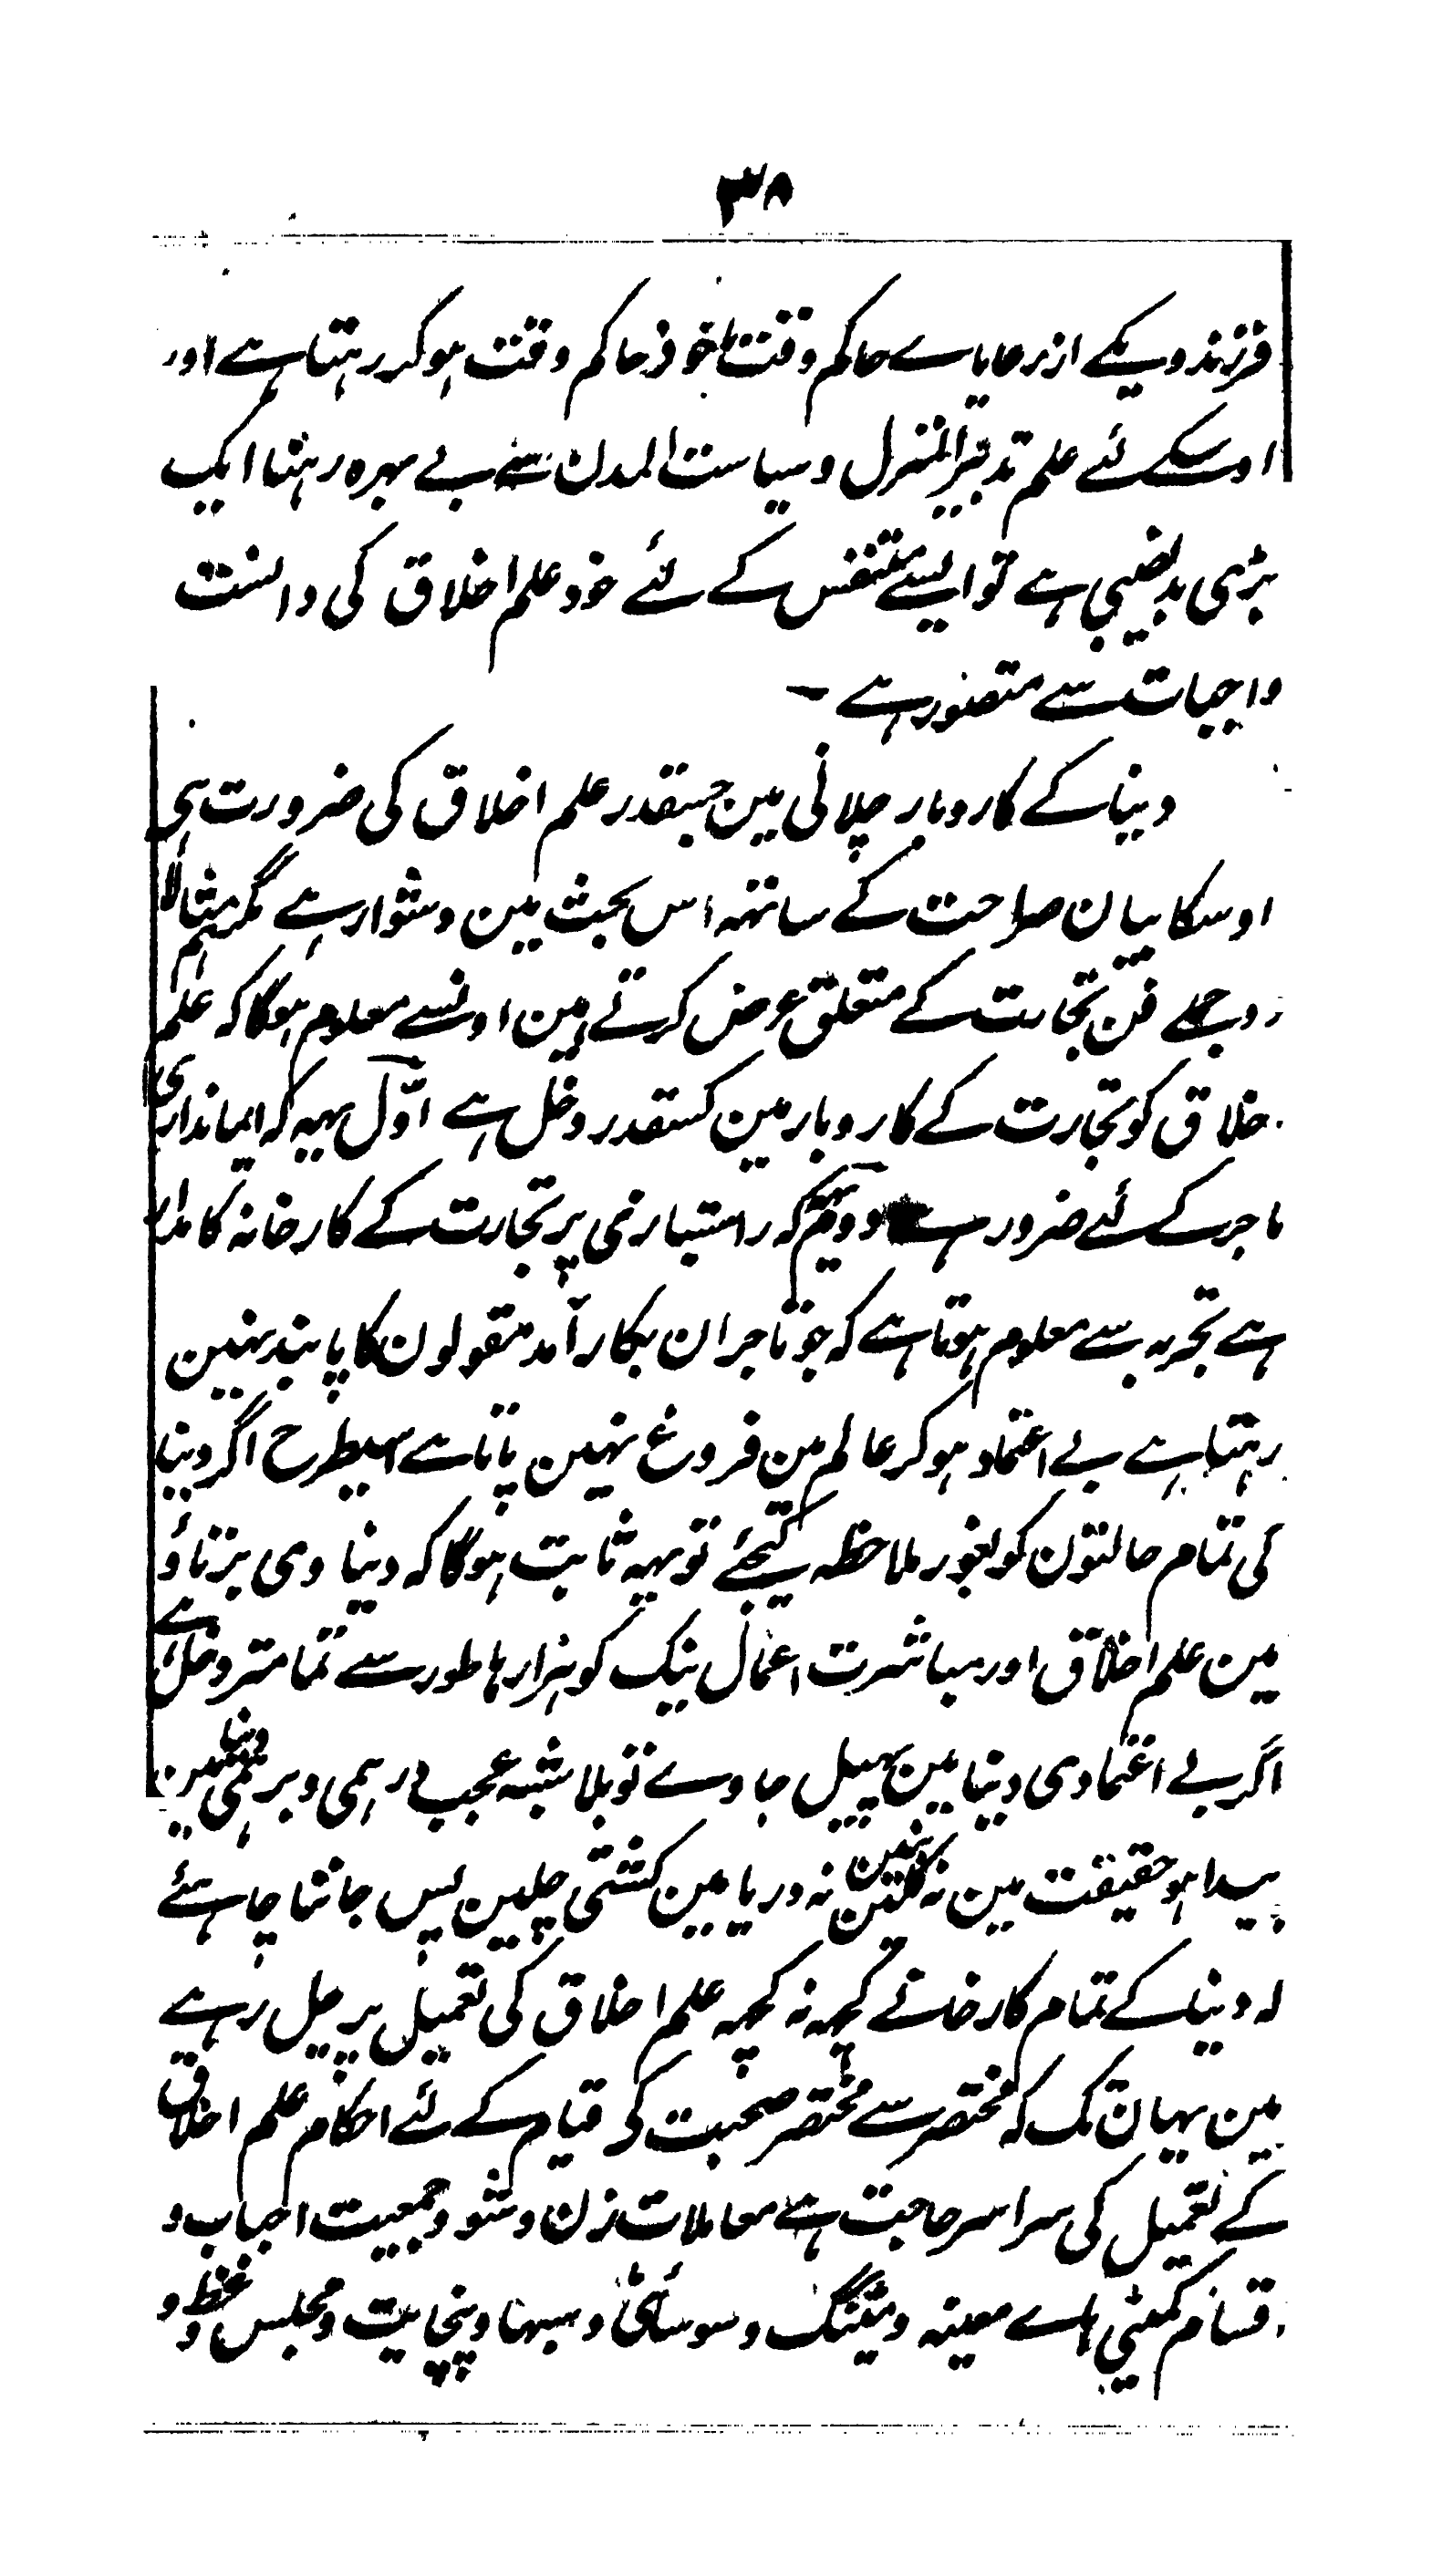 ۳۸
فرزند ویکے از رعایاے حاکم وقت یا خود حاکم وقت ہوکر رہتا ہے اور
اوسکے لئے علم تدبیر المنزل و سیاست المدن سے بے بہرہ رہنا ایک
بڑی بدنصیبی ہے تو ایسے متنفس کے لئے خود علم اخلاق کی دانست
واجبات سے متصور ہے ۔
دنیا کے کاروبار چلانی مین جسقدر علم اخلاق کی ضرورت ہی
اوسکا بیان صراحت کے ساتھہ اس بحث مین دشوار ہے مگر مثالاً ہم
دو جملے فن تجارت کے متعلق عرض کرتے ہین اونسے معلوم ہوگا کہ علم
خلاق کو تجارت کے کاروبار مین کسقدر دخل ہے اوّل یہہ کہ ایمانداری
تاجر کے لئے ضرور ہے دویم یہہ کہ راستبازی پر تجارت کے کارخانہ کا مدار
ہے تجربہ سے معلوم ہوتا ہے کہ جو تاجر ان بکار آمد مقولون کا پابند نہین
رہتا ہے بے اعتماد ہوکر عالم مین فروغ نہین پاتا ہے اسیطرح اگر دنیا
کی تمام حالتون کو بغور ملاحظہ کیجئے تو یہہ ثابت ہوگا کہ دنیاوی برتاؤ
مین علم اخلاق اور مباشرت اعمال نیک کو ہزارہا طور سے تمامتر دخل ہے
اگر بے اعتمادی دنیا مین پھیل جاوے تو بلا شبہ عجب بے رہمی و برہمی دنیا مین
پیدا ہو حقیقت مین نہ کلین نہ دریا مین کشتی چلین پس جاننا چاہئے
کہ دنیا کے تمام کارخانے کچھہ نہ کچھہ علم اخلاق کی تعمیل پر چل رہے
ہین یہان تک کہ مختصر سے مختصر صحبت کی قیام کے لئے احکام علم اخلاق
کے تعمیل کی سراسر حاجت ہے معاملات زن و شو و جمعیت احباب و
قسام کمیٹی ہاے معینہ و میٹنگ و سوسائٹی و سبھا و پنچایت و مجلس وعظ و